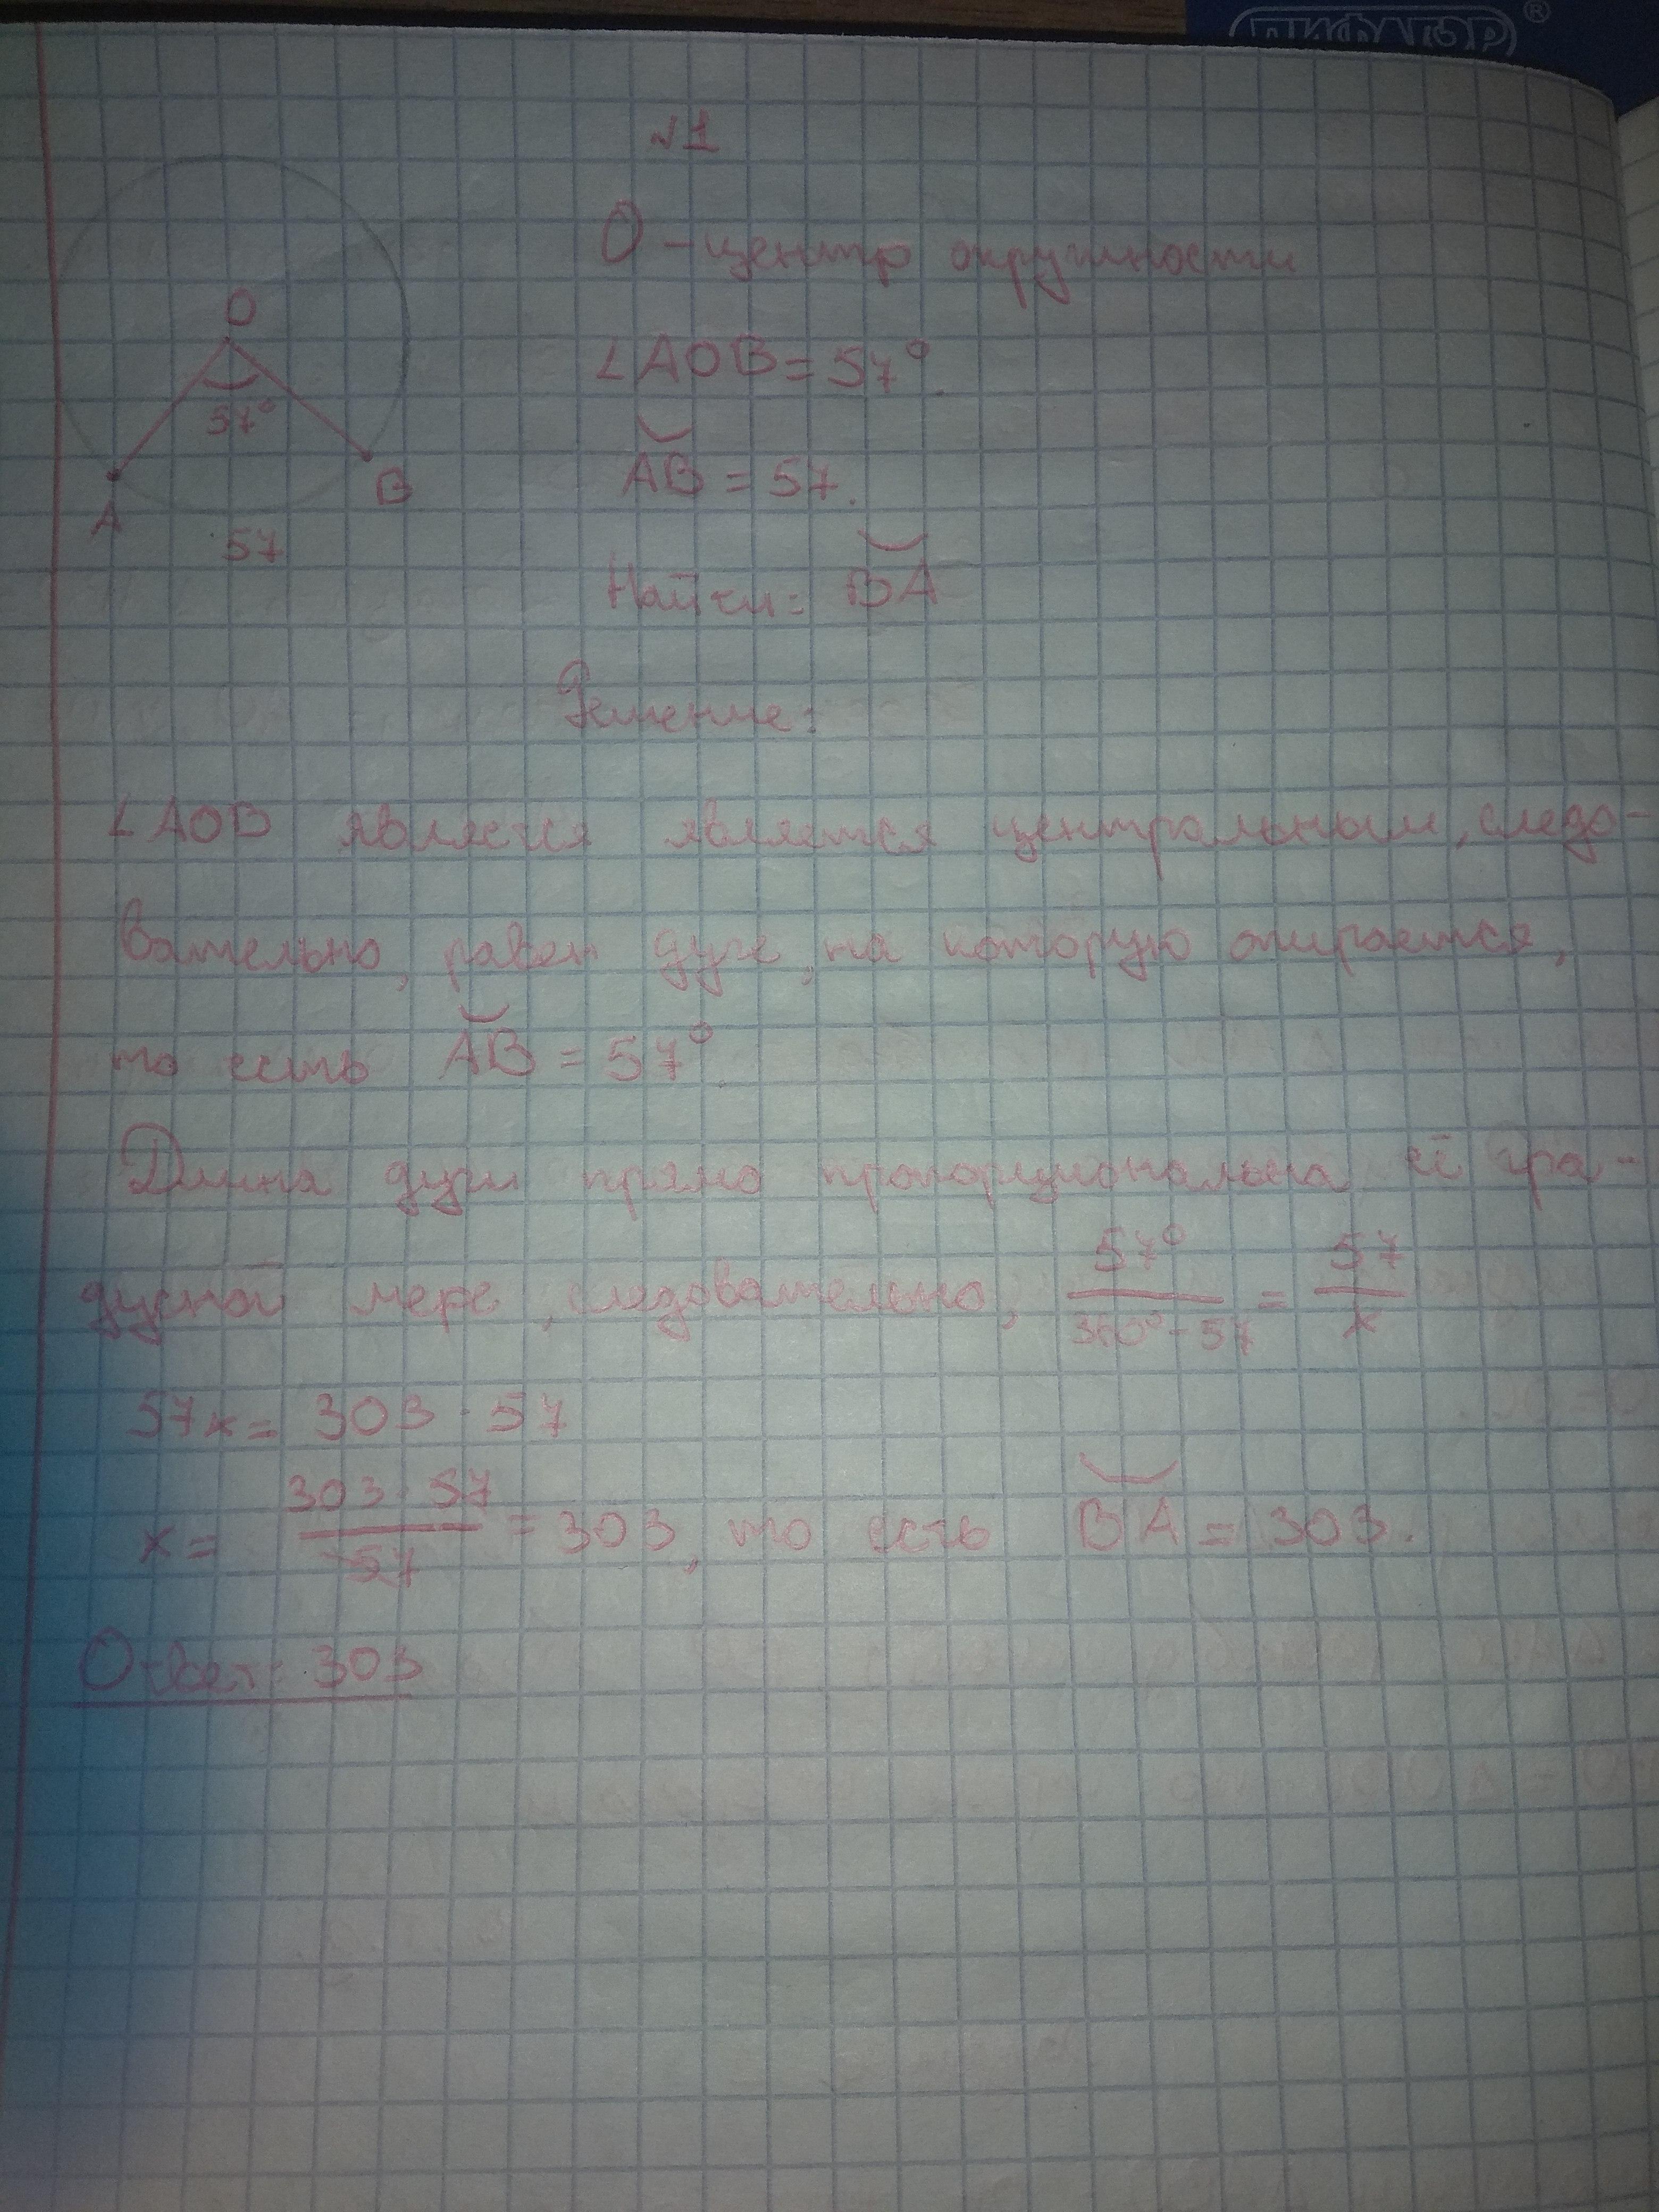 ПИФАГОР®
№1
O - центр окружности
∠AOB = 57°
AB = 57.
Найти: BA
O
57°
A
B
57
Решение:
∠AOB является является центральным, следо-
вательно, равен дуге, на которую опирается,
то есть AB = 57°.
Длина дуги прямо пропорциональна её гра-
дусной мере, следовательно, 57°/(360° - 57) = 57/x
57x = 303 · 57
x = (303 · 57)/57 = 303, то есть BA = 303.
Ответ: 303